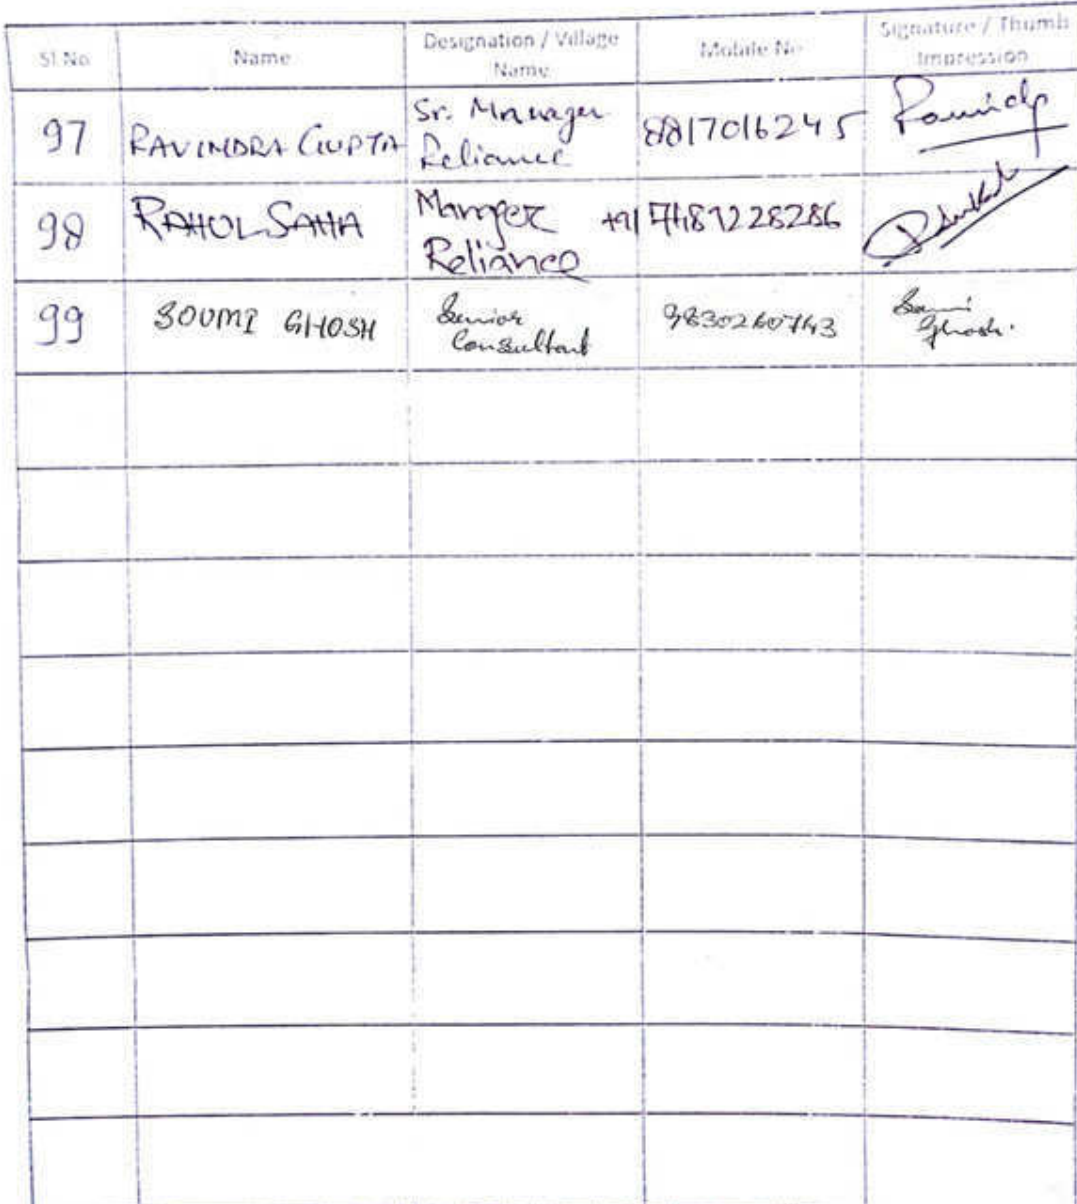 Sl.No
Name
Designation / Village
Name
Mobile No
Signature / Thumb
Impression
97
RAVINDRA GUPTA
Sr. Manager
Reliance
8817016245
98
RAHUL SAHA
Manger
Reliance
+91
99
SOUMI GHOSH
Senior
Consultant
9830260743
Soumi
Ghosh.